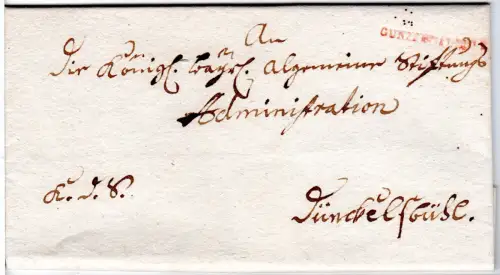 An
GUNZENHAUSEN
Die Königl. bayr. Algemeine Stiftungs
Administration
K. d. S.
Dünckelsbühl.